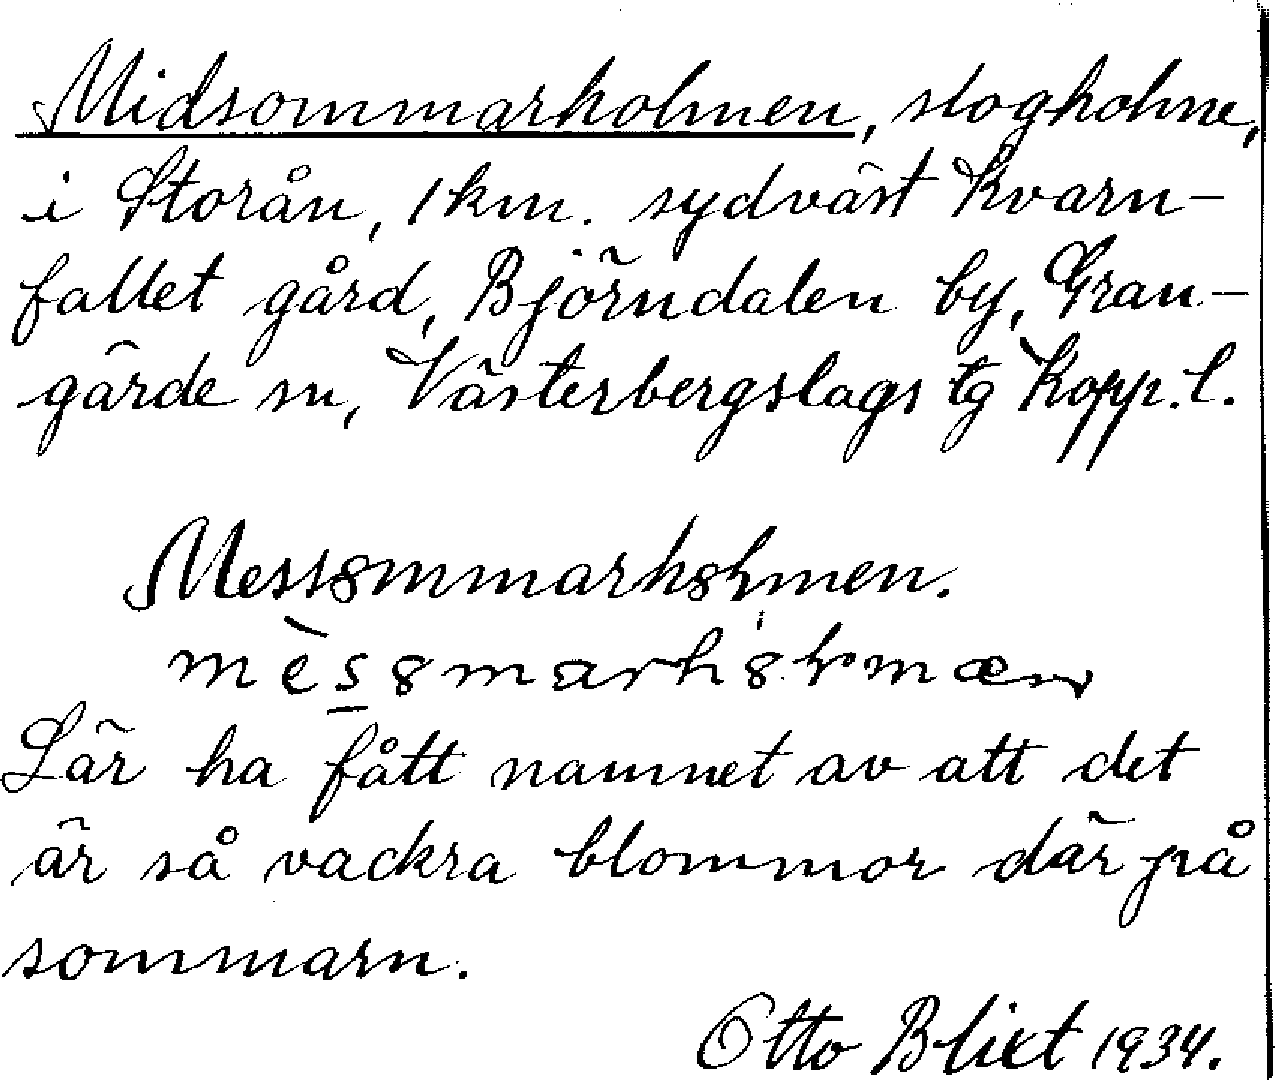 Midsommarholmen, slogholme,
i Storån, 1 km. sydväst Kvarn-
fallet gård, Björndalen by, Gran-
gärde sn, Västerbergslags tg Kopp. l.
Mess8mmarh8lmen.
mès8marh8lmæn
Lär ha fått namnet av att det
är så vackra blommor där på
sommarn.
Otto Blixt 1934.